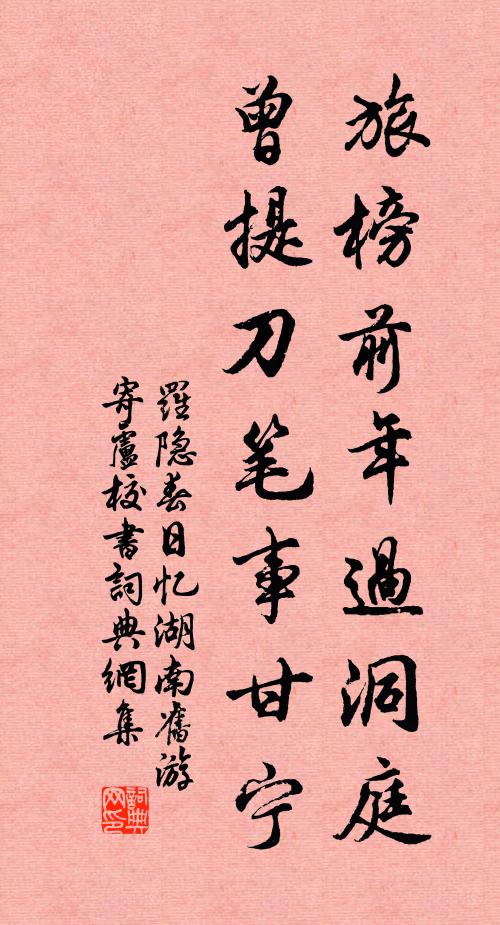 旅榜前年過洞庭
曾提刀笔事甘宁
羅隐春日忆湖南舊游
寄盧校書詞典網集
詞典
网印